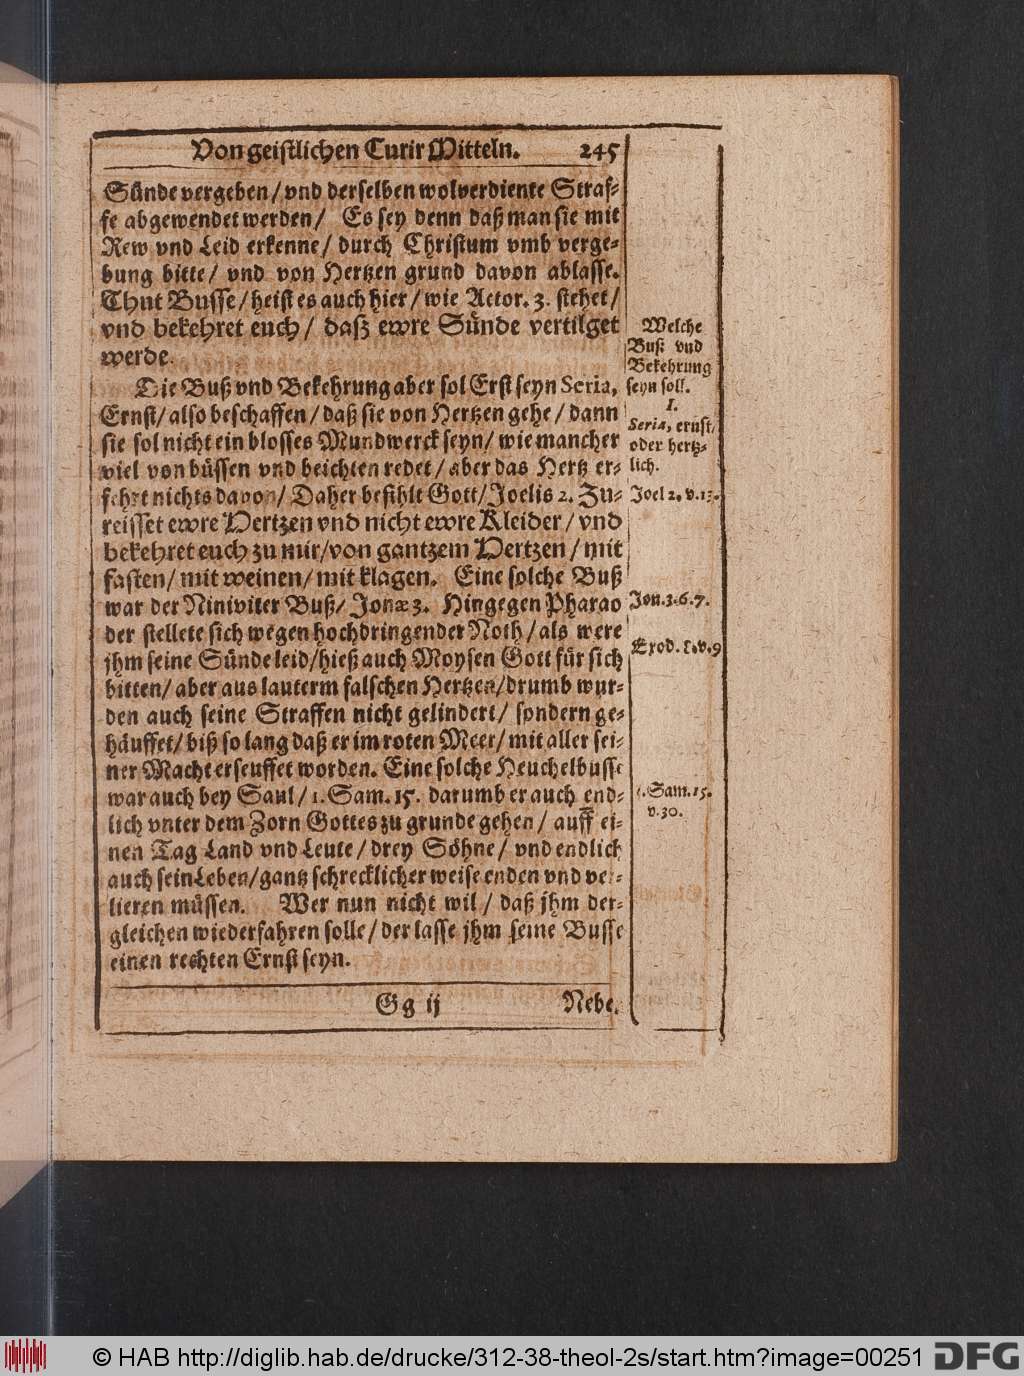 Von geistlichen Curir Mitteln. 245
Sünde vergeben / vnd derselben wolverdiente Straf-
fe abgewendet werden / Es sey denn daß man sie mit
Rew vnd Leid erkenne / durch Christum vmb verge-
bung bitte / vnd von Hertzen grund davon ablasse.
Thut Busse / heist es auch hier / wie Actor. 3. stehet /
vnd bekehret euch / daß ewre Sünde vertilget
werde.
Die Buß vnd Bekehrung aber sol Erst seyn Seria,
Ernst / also beschaffen / daß sie von Hertzen gehe / dann
sie sol nicht ein blosses Mundwerck seyn / wie mancher
viel von büssen vnd beichten redet / aber das Hertz er-
fehrt nichts davon / Daher befihlt Gott / Joelis 2. Zu-
reisset ewre Hertzen vnd nicht ewre Kleider / vnd
bekehret euch zu mir / von gantzem Hertzen / mit
fasten / mit weinen / mit klagen. Eine solche Buß
war der Niniviter Buß / Jonæ 3. Hingegen Pharao
der stellete sich wegen hochdringender Noth / als were
jhm seine Sünde leid / hieß auch Moysen Gott für sich
bitten / aber aus lauterm falschen Hertzen / drumb wur-
den auch seine Straffen nicht gelindert / sondern ge-
häuffet / biß so lang daß er im roten Meer / mit aller sei-
ner Macht erseuffet worden. Eine solche Heuchelbusse
war auch bey Saul / 1. Sam. 15. darumb er auch end-
lich vnter dem Zorn Gottes zu grunde gehen / auff ei-
nen Tag Land vnd Leute / drey Söhne / vnd endlich
auch sein Leben / gantz schrecklicher weise enden vnd ver-
lieren müssen. Wer nun nicht wil / daß jhm der-
gleichen wiederfahren solle / der lasse jhm seine Busse
einen rechten Ernst seyn.
Gg ij Nebe.
Welche
Buß vnd
Bekehrung
seyn soll.
1.
Seria, ernst /
oder hertz-
lich.
Joel 2. v. 13.
Jon. 3. 6. 7.
Exod. v. 9
1. Sam. 15.
v. 30.
© HAB http://diglib.hab.de/drucke/312-38-theol-2s/start.htm?image=00251
DFG